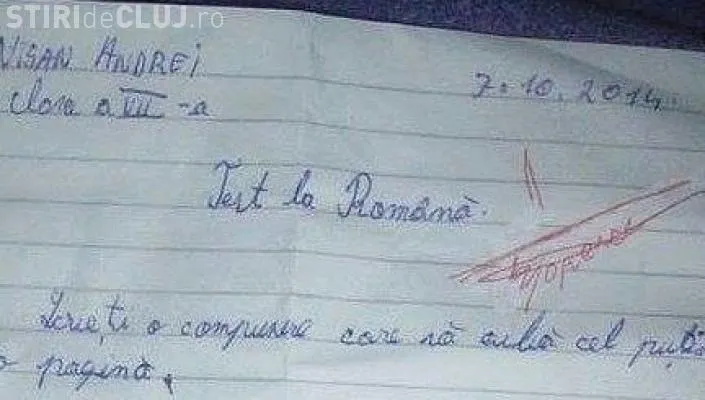 ȘTIRIdeCLUJ.ro
VIȘAN ANDREI
7.10.2014
clasa a VII-a
Test la Română.
Scrieți o compunere care să aibă cel puțin
o pagină.